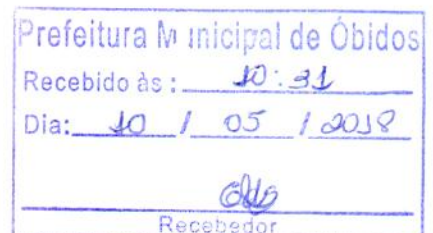 Prefeitura Municipal de Óbidos
Recebido às: 10:31
Dia: 10 / 05 / 2018
Recebedor